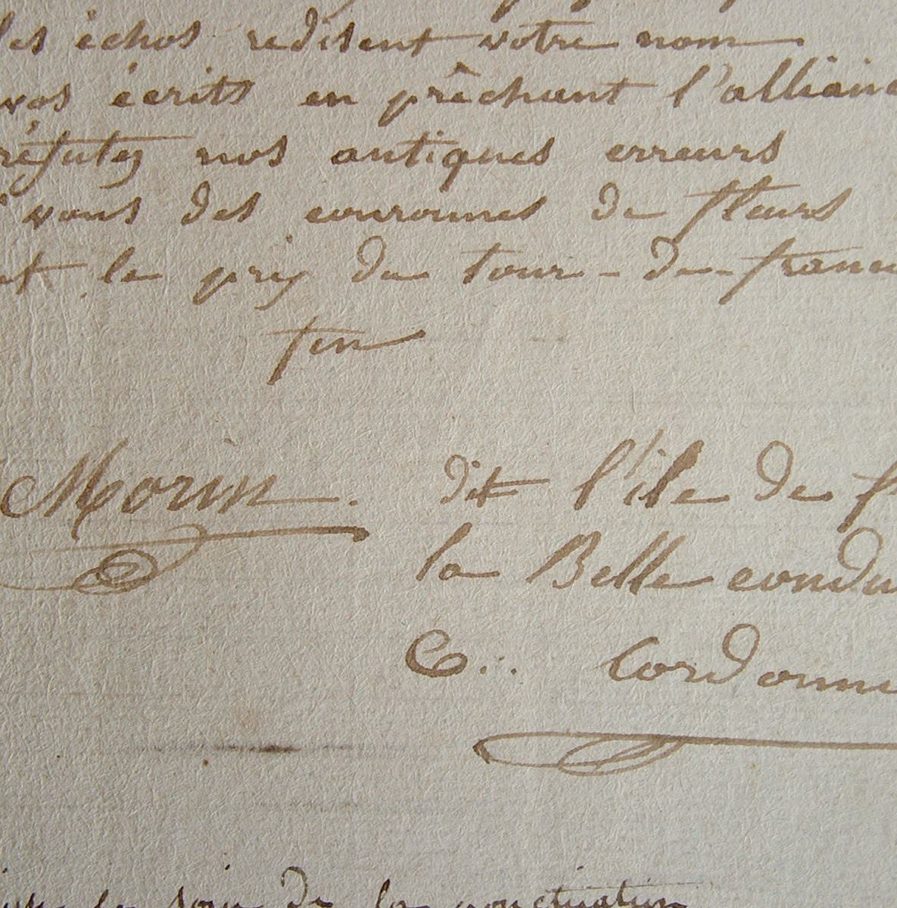 les échos redisent votre nom
vos écrits en prêchant l'allianc
réfutez nos antiques erreurs
vous des couronnes de fleurs
et le prix du tour-de-france
fin
Morin. dit l'île de f
la Belle condu
C... Cordonni
le soin de la ponctuation